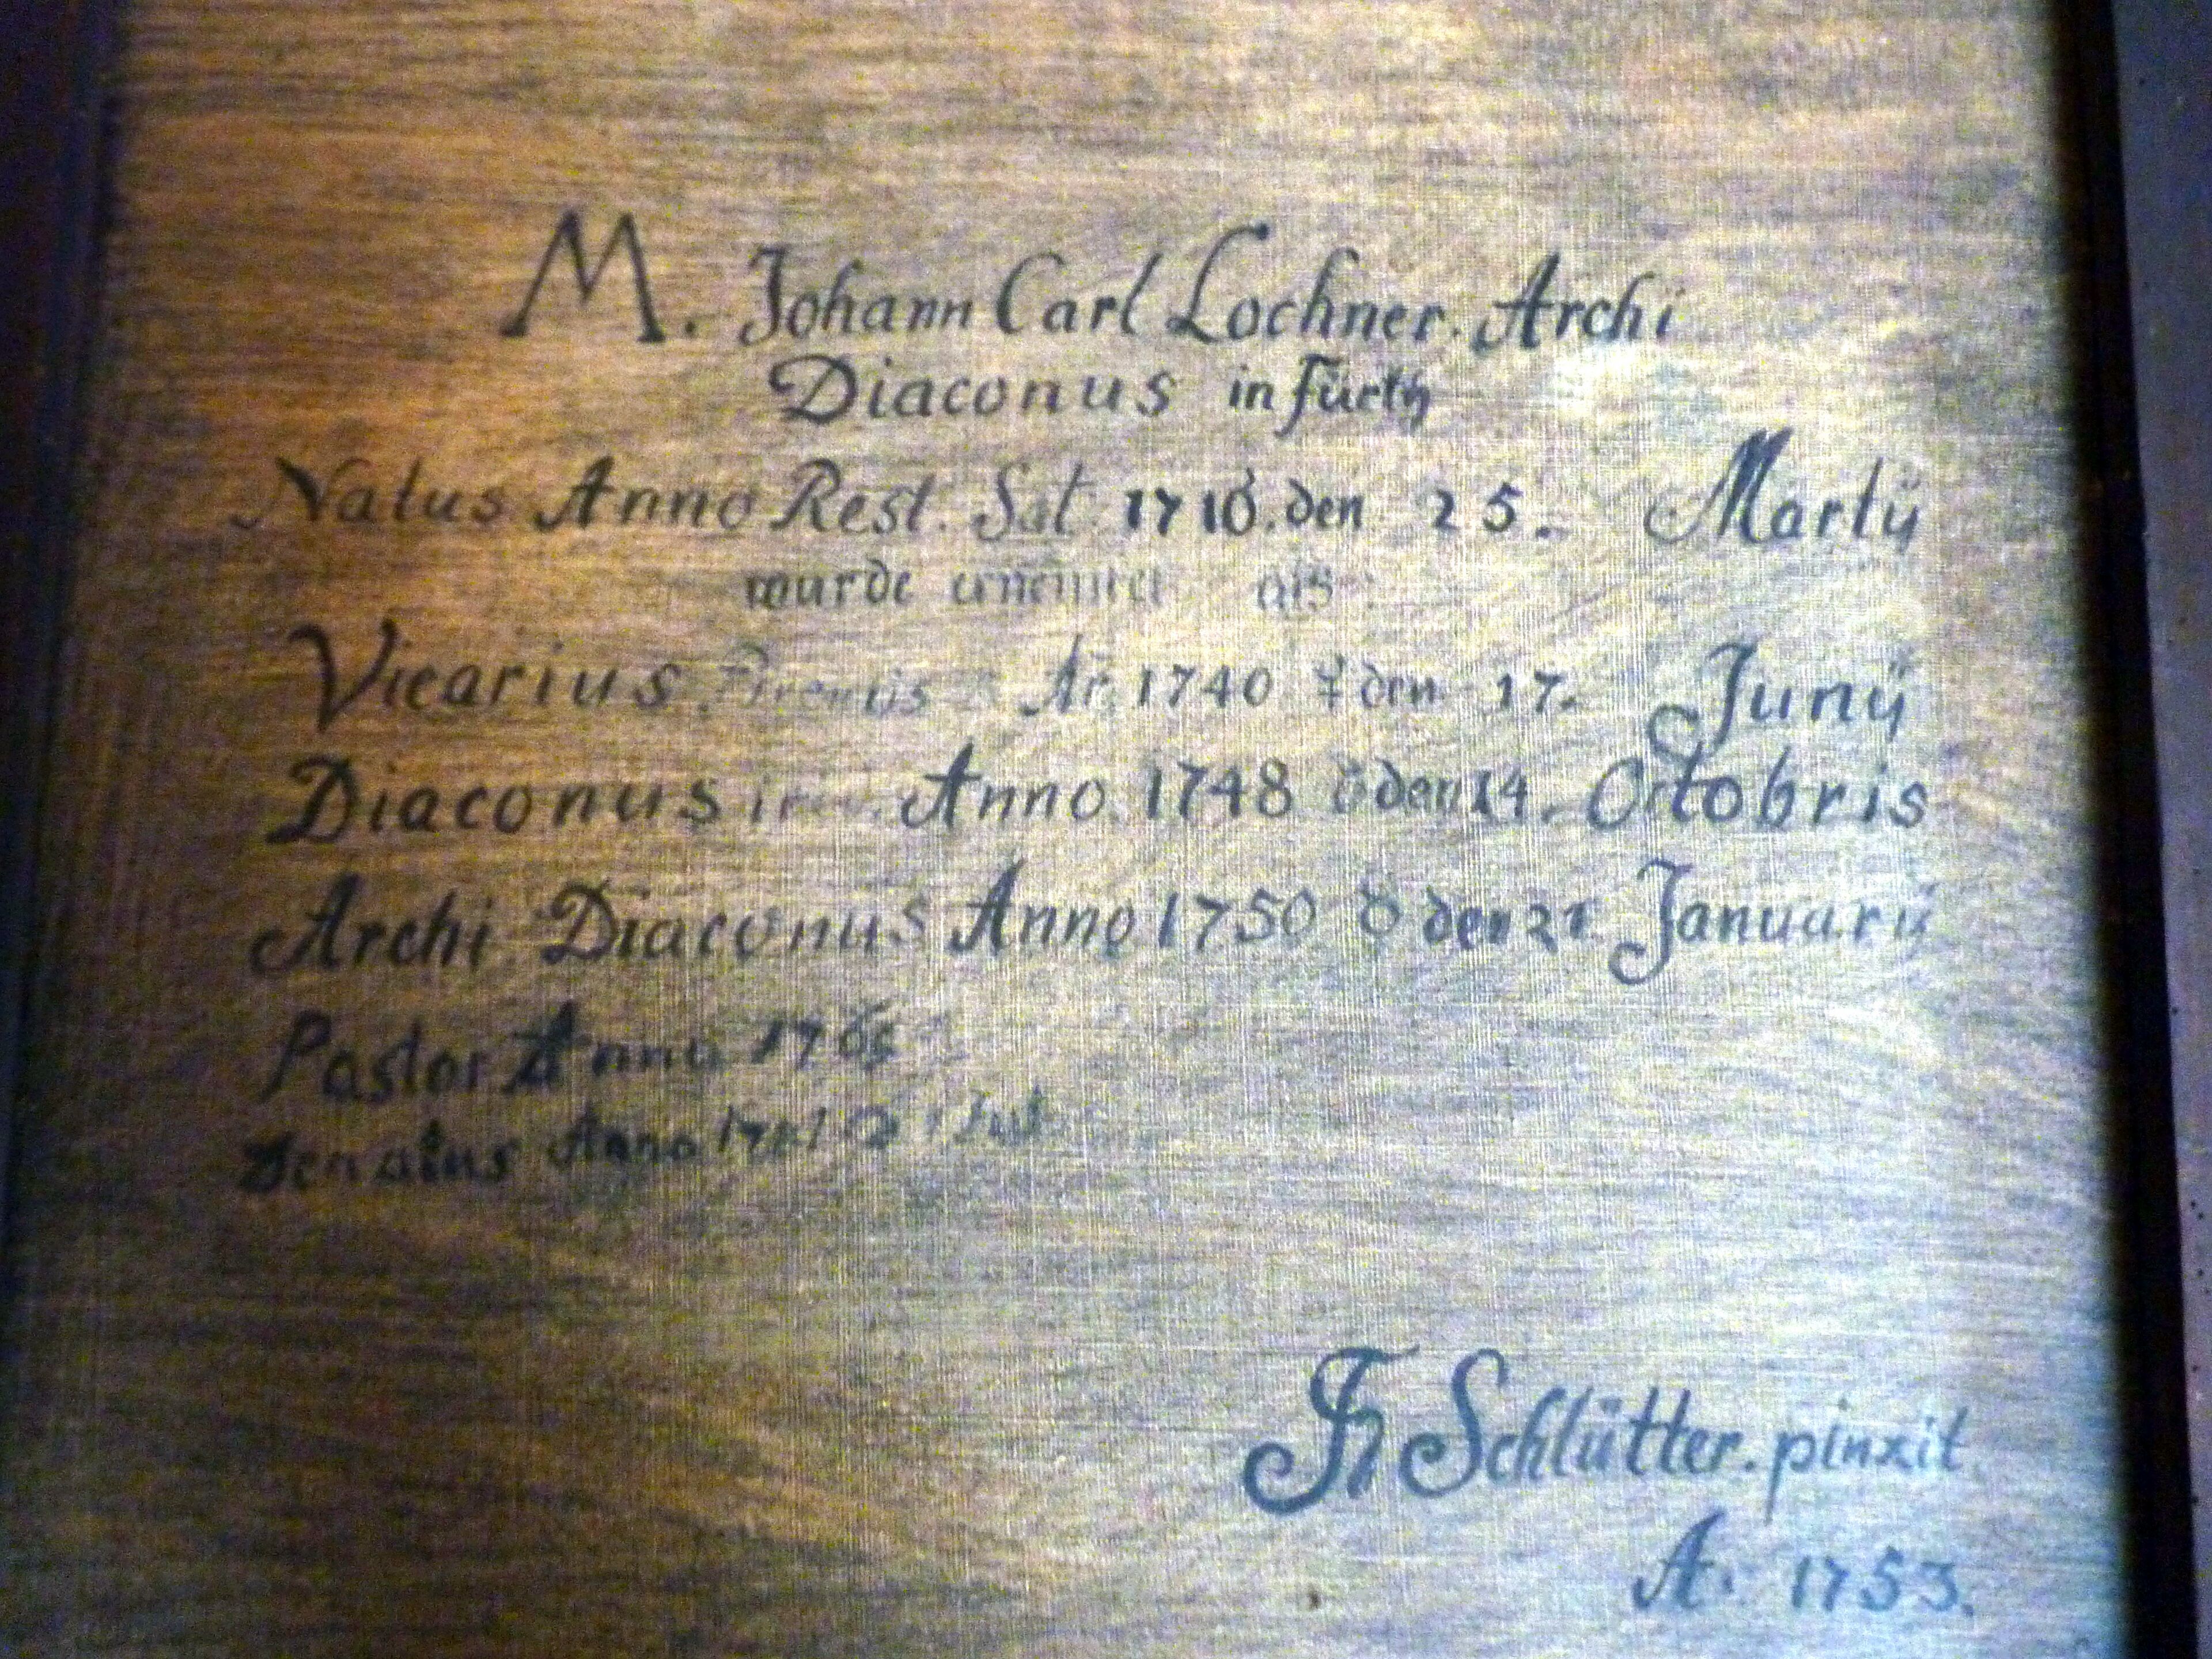 M. Johann Carl Lochner. Archi
Diaconus in Fürth
Natus Anno Rest. Sal. 1710. den 25. Martÿ
wurde als
Vicarius Ao. 1740 ♀ den 17. Junÿ
Diaconus Anno. 1748 den 14. Octobris
Archi Diaconus Anno 1750 den 21. Januarÿ
Pastor Anno
Denatus Anno
Schlütter. pinxit.
A. 1753.